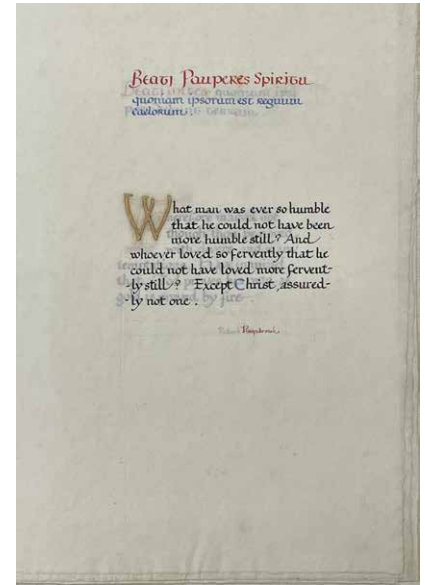 Beati Pauperes Spiritu
quoniam ipsorum est regnum
caelorum:
What man was ever so humble
that he could not have been
more humble still? And
whoever loved so fervently that he
could not have loved more fervent-
-ly still? Except Christ, assured-
-ly not one.